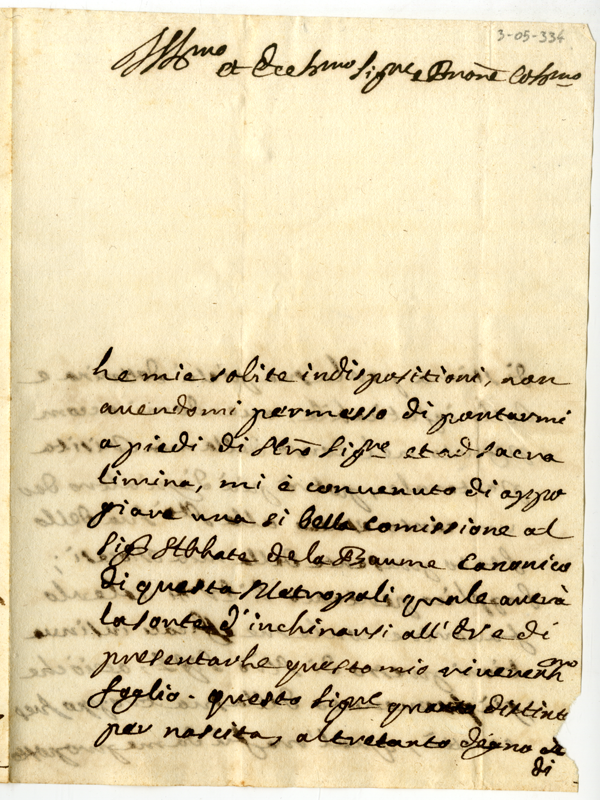 3-05-334
Ill.mo et Ecc.mo Sig.re e Pron̄e Col.mo
Le mie solite indispositioni, non
auendomi permesso di portarmi
a piedi di N̄ro Sig.re et ad sacra
limina, mi è conuenuto di appo
giare una si bella comissione al
Sig.r Abbate de la Baume Canonico
di questa Metropoli quale auerà
la sorte d'inchinarsi all'E.V. e di
presentarle questo mio riuerent.mo
foglio. questo Sig.re distint
per nascita, altretanto degno
di